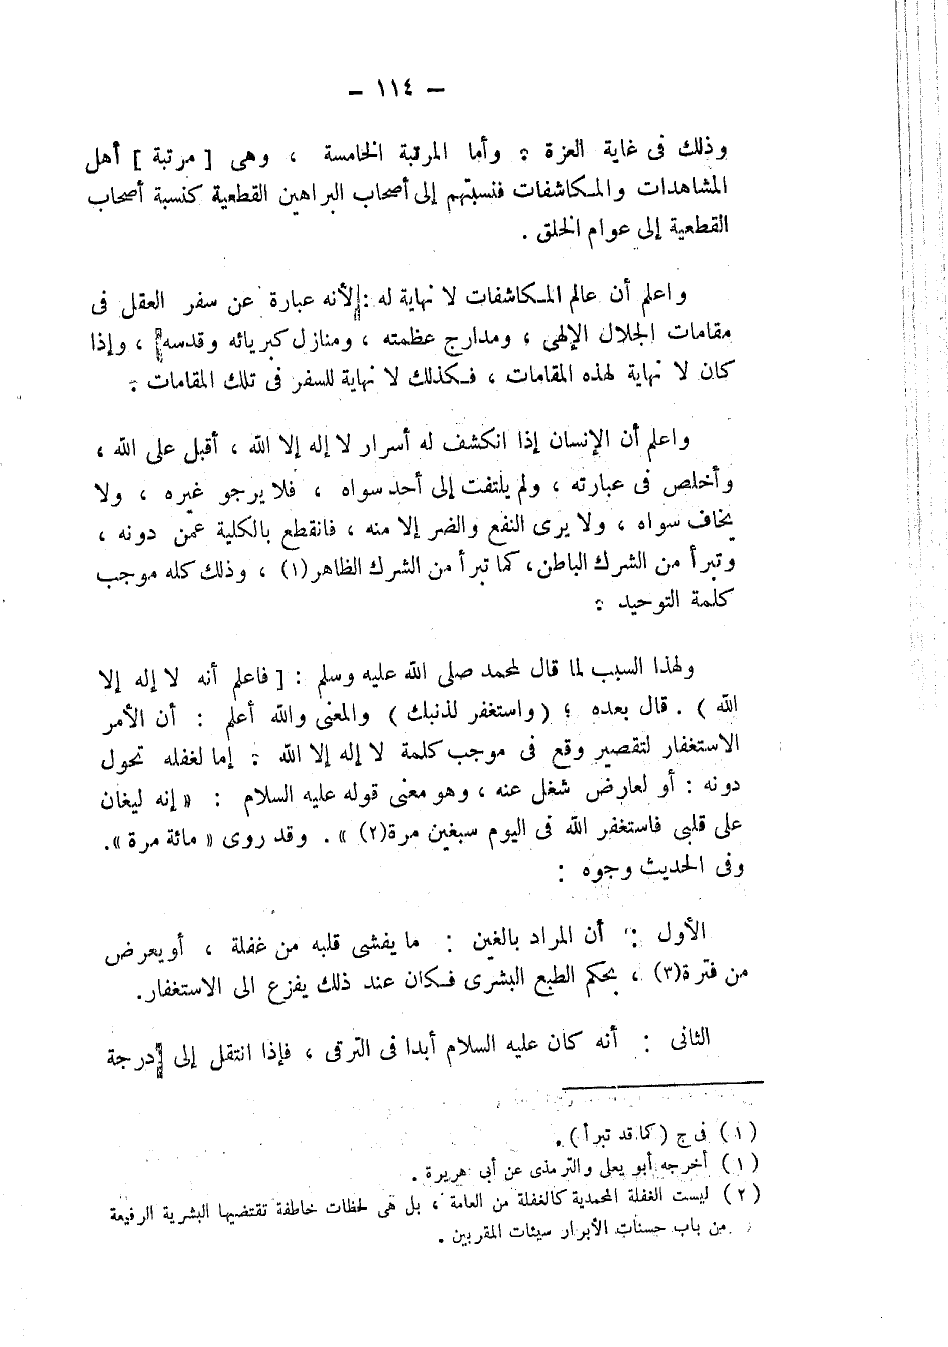 – ١١٤ –
وذلك فى غاية العزة . وأما المرتبة الخامسة ، وهى [ مرتبة ] أهل
المشاهدات والمكاشفات فنسبتهم إلى أصحاب البراهين القطعية كنسبة أصحاب
القطعية إلى عوام الخلق .
واعلم أن عالم المكاشفات لا نهاية له : لأنه عبارة عن سفر العقل فى
مقامات الجلال الإلهى ، ومدارج عظمته ، ومنازل كبريائه وقدسه ، وإذا
كان لا نهاية لهذه المقامات ، فكذلك لا نهاية للسفر فى تلك المقامات .
واعلم أن الإنسان إذا انكشف له أسرار لا إله إلا الله ، أقبل على الله ،
وأخلص فى عبارته ، ولم يلتفت إلى أحد سواه ، فلا يرجو غيره ، ولا
يخاف سواه ، ولا يرى النفع والضر إلا منه ، فانقطع بالكلية عمن دونه ،
وتبرأ من الشرك الباطن، كما تبرأ من الشرك الظاهر(١) ، وذلك كله موجب
كلمة التوحيد .
ولهذا السبب لما قال لمحمد صلى الله عليه وسلم : [ فاعلم أنه لا إله إلا
الله ) . قال بعده ؛ (واستغفر لذنبك ) والمعنى والله أعلم : أن الأمر
الاستغفار لتقصير وقع فى موجب كلمة لا إله إلا الله . إما لغفله تحول
دونه : أو لعارض شغل عنه ، وهو معنى قوله عليه السلام : « إنه ليغان
على قلبى فاستغفر الله فى اليوم سبغين مرة(٢) ». وقد روى « مائة مرة ».
وفى الحديث وجوه :
الأول : أن المراد بالغين : ما يفشى قلبه من غفلة ، أو يعرض
من فترة(٣) ، بحكم الطبع البشرى فكان عند ذلك يفزع الى الاستغفار.
الثانى : أنه كان عليه السلام أبدا فى الترقى ، فإذا انتقل إلى درجة
(١) فى ج (كما قد تبرأ ) .
(١) أخرجه أبو يعلى والترمذى عن أبى هريرة .
(٢) ليست الغفلة المحمدية كالغفلة من العامة ، بل هى لحظات خاطفة تقتضيها البشرية الرفيعة
من باب حسنات الأبرار سيئات المقربين .